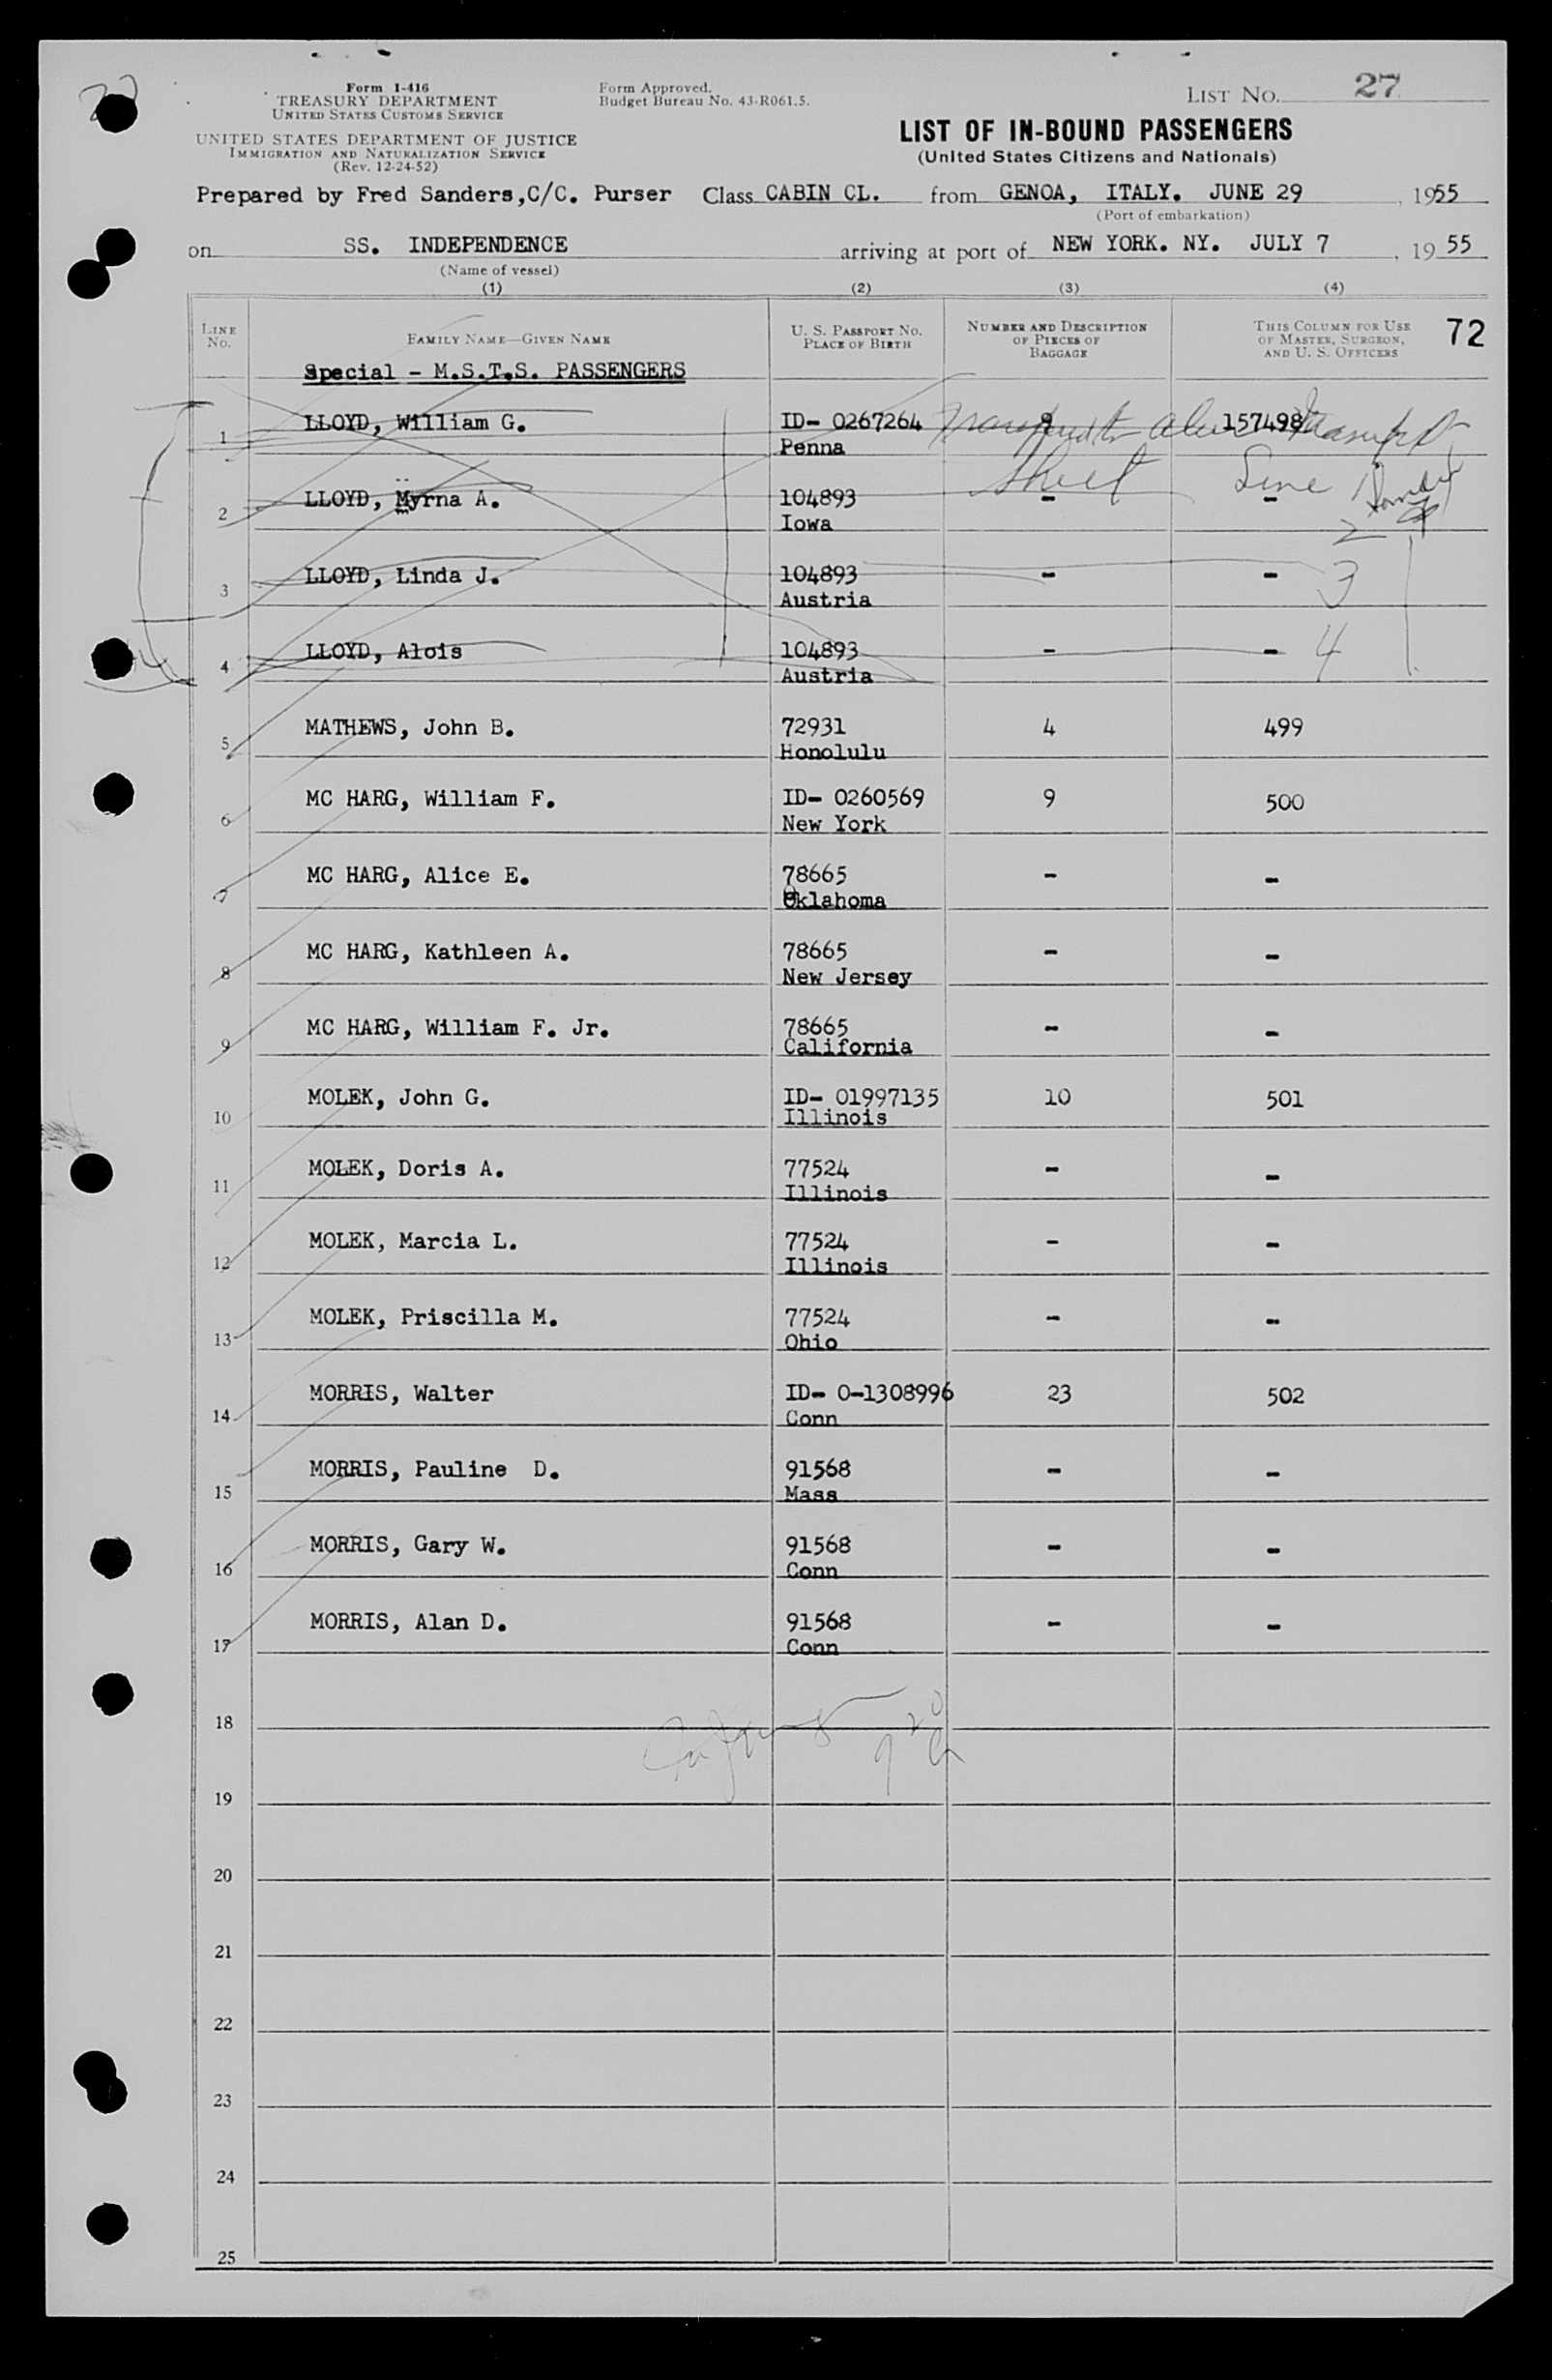 27
Form I-416
TREASURY DEPARTMENT
UNITED STATES CUSTOMS SERVICE
UNITED STATES DEPARTMENT OF JUSTICE
IMMIGRATION AND NATURALIZATION SERVICE
(Rev. 12-24-52)
Form Approved.
Budget Bureau No. 43-R061.5.
LIST NO. 27
LIST OF IN-BOUND PASSENGERS
(United States Citizens and Nationals)
Prepared by Fred Sanders,C/C. Purser Class CABIN CL. from GENOA, ITALY. JUNE 29, 1955
(Port of embarkation)
on SS. INDEPENDENCE arriving at port of NEW YORK. NY. JULY 7, 19 55
(Name of vessel)
(1) (2) (3) (4)
LINE NO. FAMILY NAME—GIVEN NAME U. S. PASSPORT NO. PLACE OF BIRTH NUMBER AND DESCRIPTION OF PIECES OF BAGGAGE THIS COLUMN FOR USE OF MASTER, SURGEON, AND U. S. OFFICERS 72
Special - M.S.T.S. PASSENGERS
1 LLOYD, William G. ID- 0267264 9 157498
Penna
sheet Line 1
2 LLOYD, Myrna A. 104893 - -
Iowa 2
3 LLOYD, Linda J. 104893 - - 3
Austria
4 LLOYD, Alois 104893 - - 4
Austria
5 MATHEWS, John B. 72931 4 499
Honolulu
6 MC HARG, William F. ID- 0260569 9 500
New York
7 MC HARG, Alice E. 78665 - -
Oklahoma
8 MC HARG, Kathleen A. 78665 - -
New Jersey
9 MC HARG, William F. Jr. 78665 - -
California
10 MOLEK, John G. ID- 01997135 10 501
Illinois
11 MOLEK, Doris A. 77524 - -
Illinois
12 MOLEK, Marcia L. 77524 - -
Illinois
13 MOLEK, Priscilla M. 77524 - -
Ohio
14 MORRIS, Walter ID- 0-1308996 23 502
Conn
15 MORRIS, Pauline D. 91568 - -
Mass
16 MORRIS, Gary W. 91568 - -
Conn
17 MORRIS, Alan D. 91568 - -
Conn
18
19
20
21
22
23
24
25